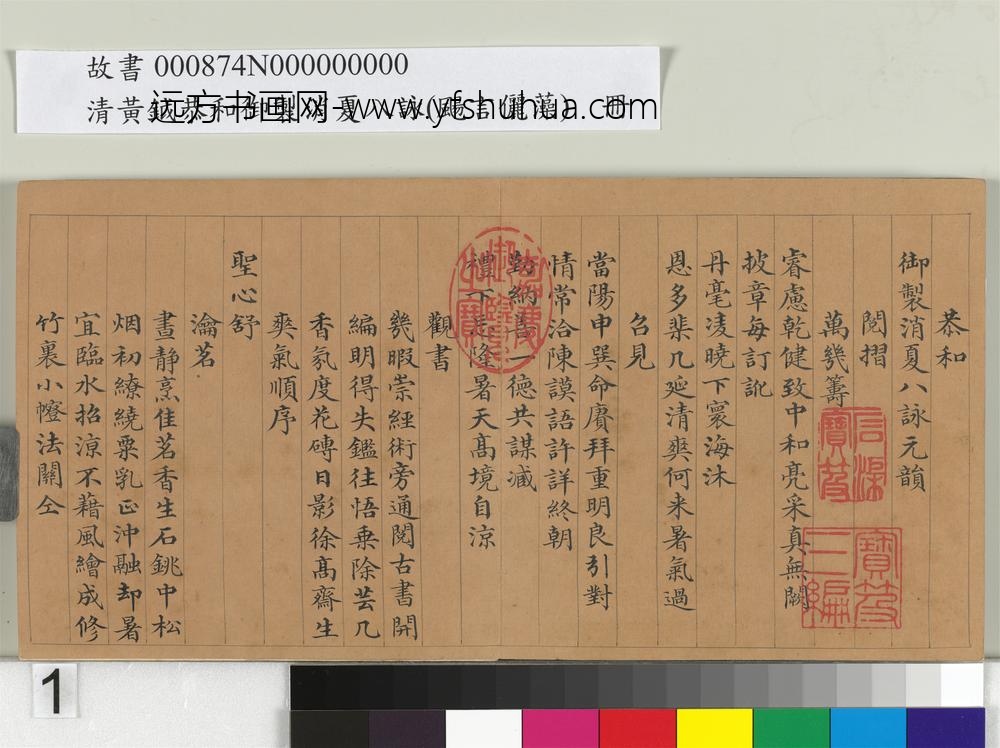 故書 000874N000000000
清黃鉞恭和御製消夏八詠
远方书画网-www.yfshuhua.com
冊
恭和
御製消夏八詠元韻
閱摺
萬幾籌
睿慮乾健致中和亮采真無闕
披章每訂訛
丹毫凌曉下寰海沐
恩多棐几延清爽何来暑氣過
召見
當陽申巽命賡拜重明良引對
情常洽陳謨語許詳終朝
勤納善一德共謀臧
禮下 隆暑天高境自涼
觀書
幾暇崇經術旁通閱古書開
編明得失鑑往悟乗除芸几
香氛度花磚日影徐高齋生
爽氣順序
聖心舒
瀹茗
晝静烹佳茗香生石銚中松
烟初繚繞粟乳正沖融却暑
宜臨水招涼不藉風繪成修
竹裏小㡧法關仝
石渠
寶笈
寶笈
三編
嘉慶御覽之寶
1